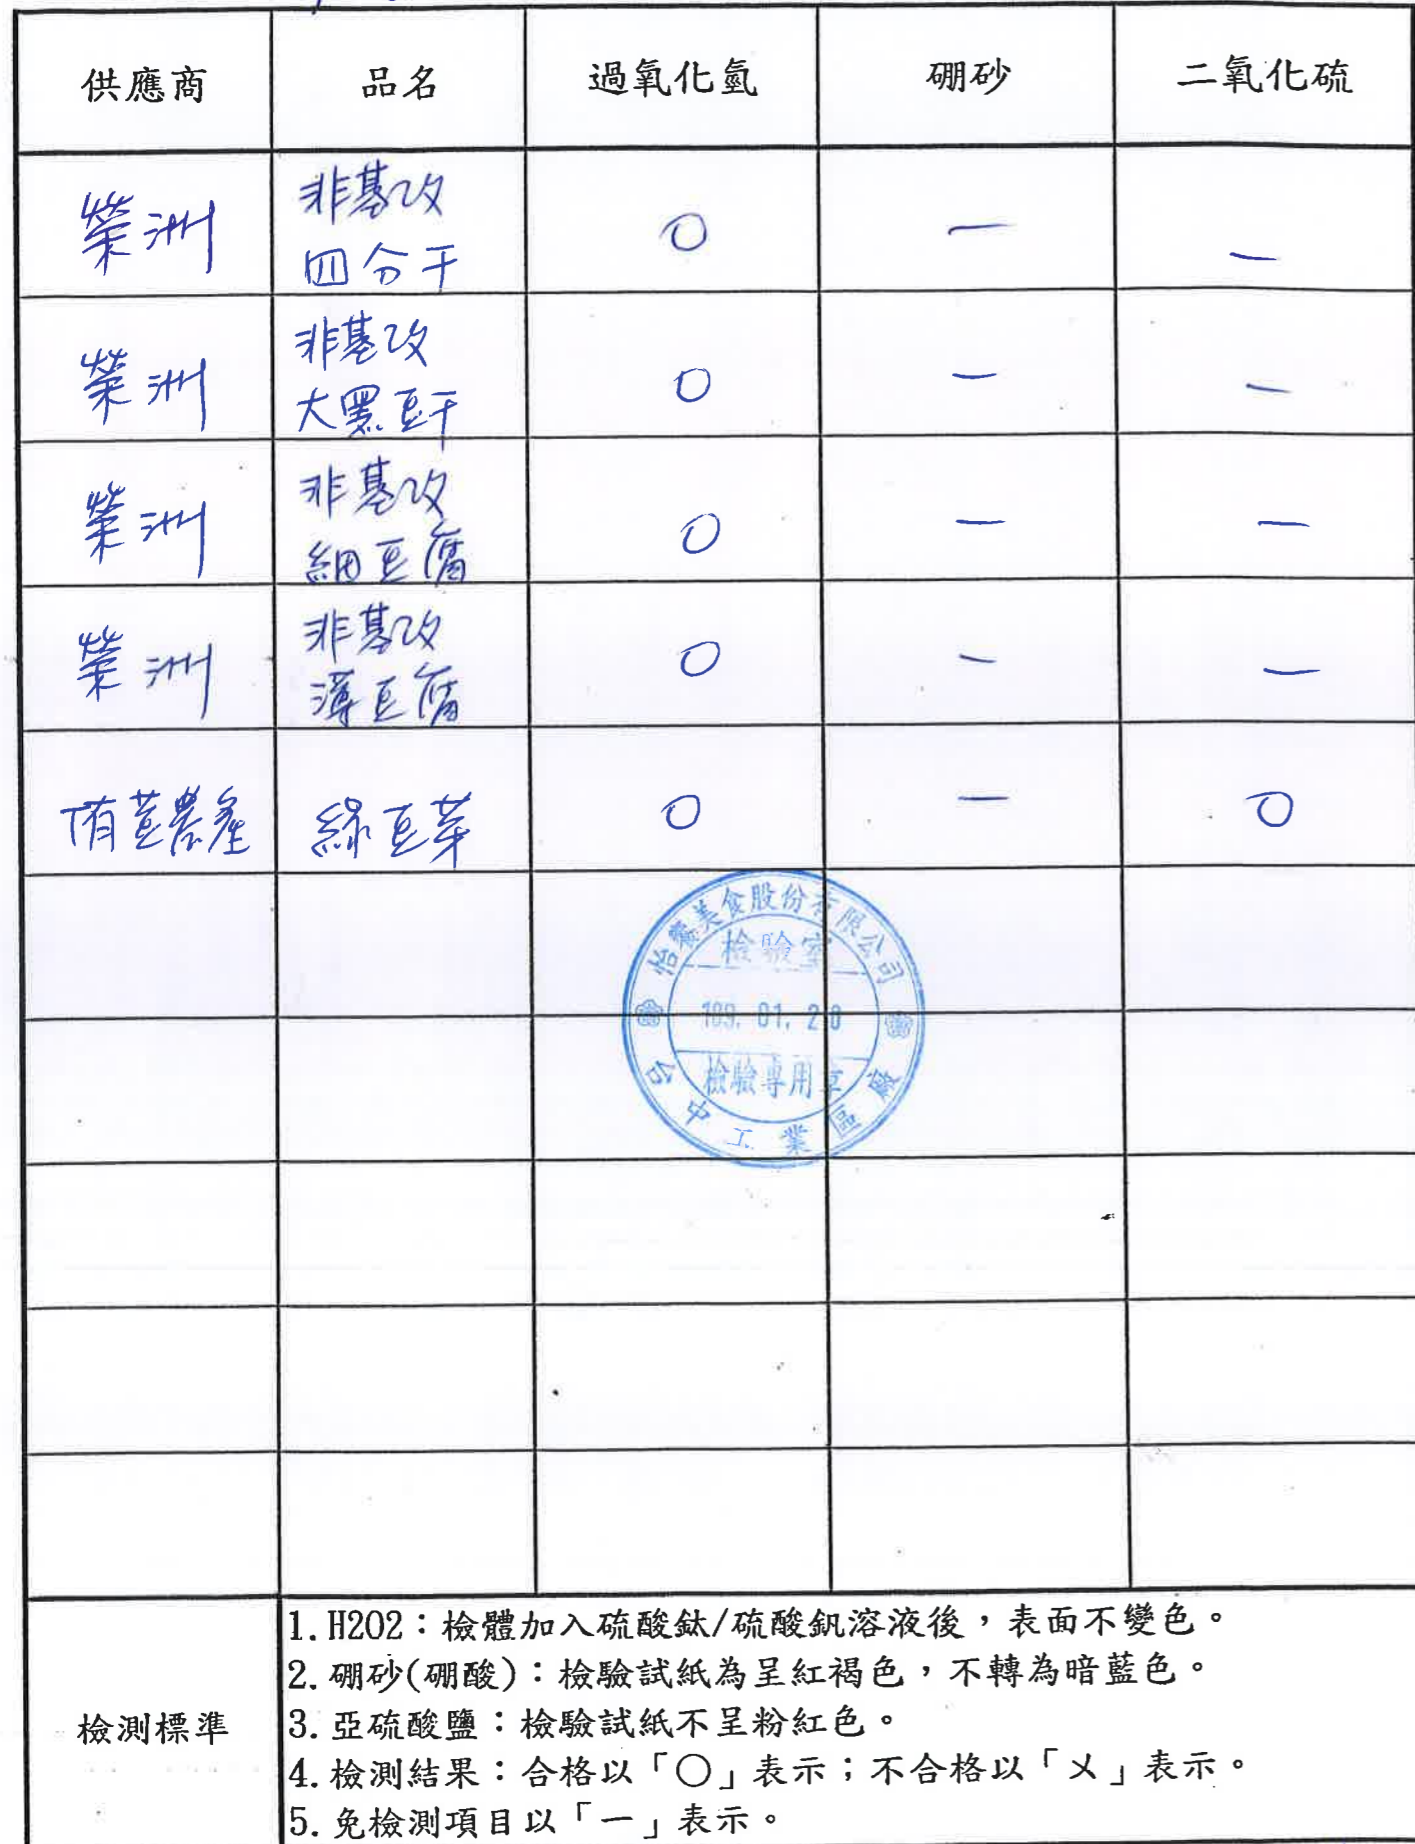 供應商 品名 過氧化氫 硼砂 二氧化硫
榮洲 非基改 ○ 一 一
四分干
榮洲 非基改 ○ 一 一
大黑豆干
榮洲 非基改 ○ 一 一
細豆腐
榮洲 非基改 ○ 一 一
薄豆腐
農產 綠豆芽 ○ 一 ○
怡饗美食股份有限公司
檢驗室
109. 01. 20
檢驗專用章
台中工業區廠
檢測標準
1. H2O2：檢體加入硫酸鈦/硫酸釩溶液後，表面不變色。
2. 硼砂(硼酸)：檢驗試紙為呈紅褐色，不轉為暗藍色。
3. 亞硫酸鹽：檢驗試紙不呈粉紅色。
4. 檢測結果：合格以「○」表示；不合格以「㐅」表示。
5. 免檢測項目以「一」表示。